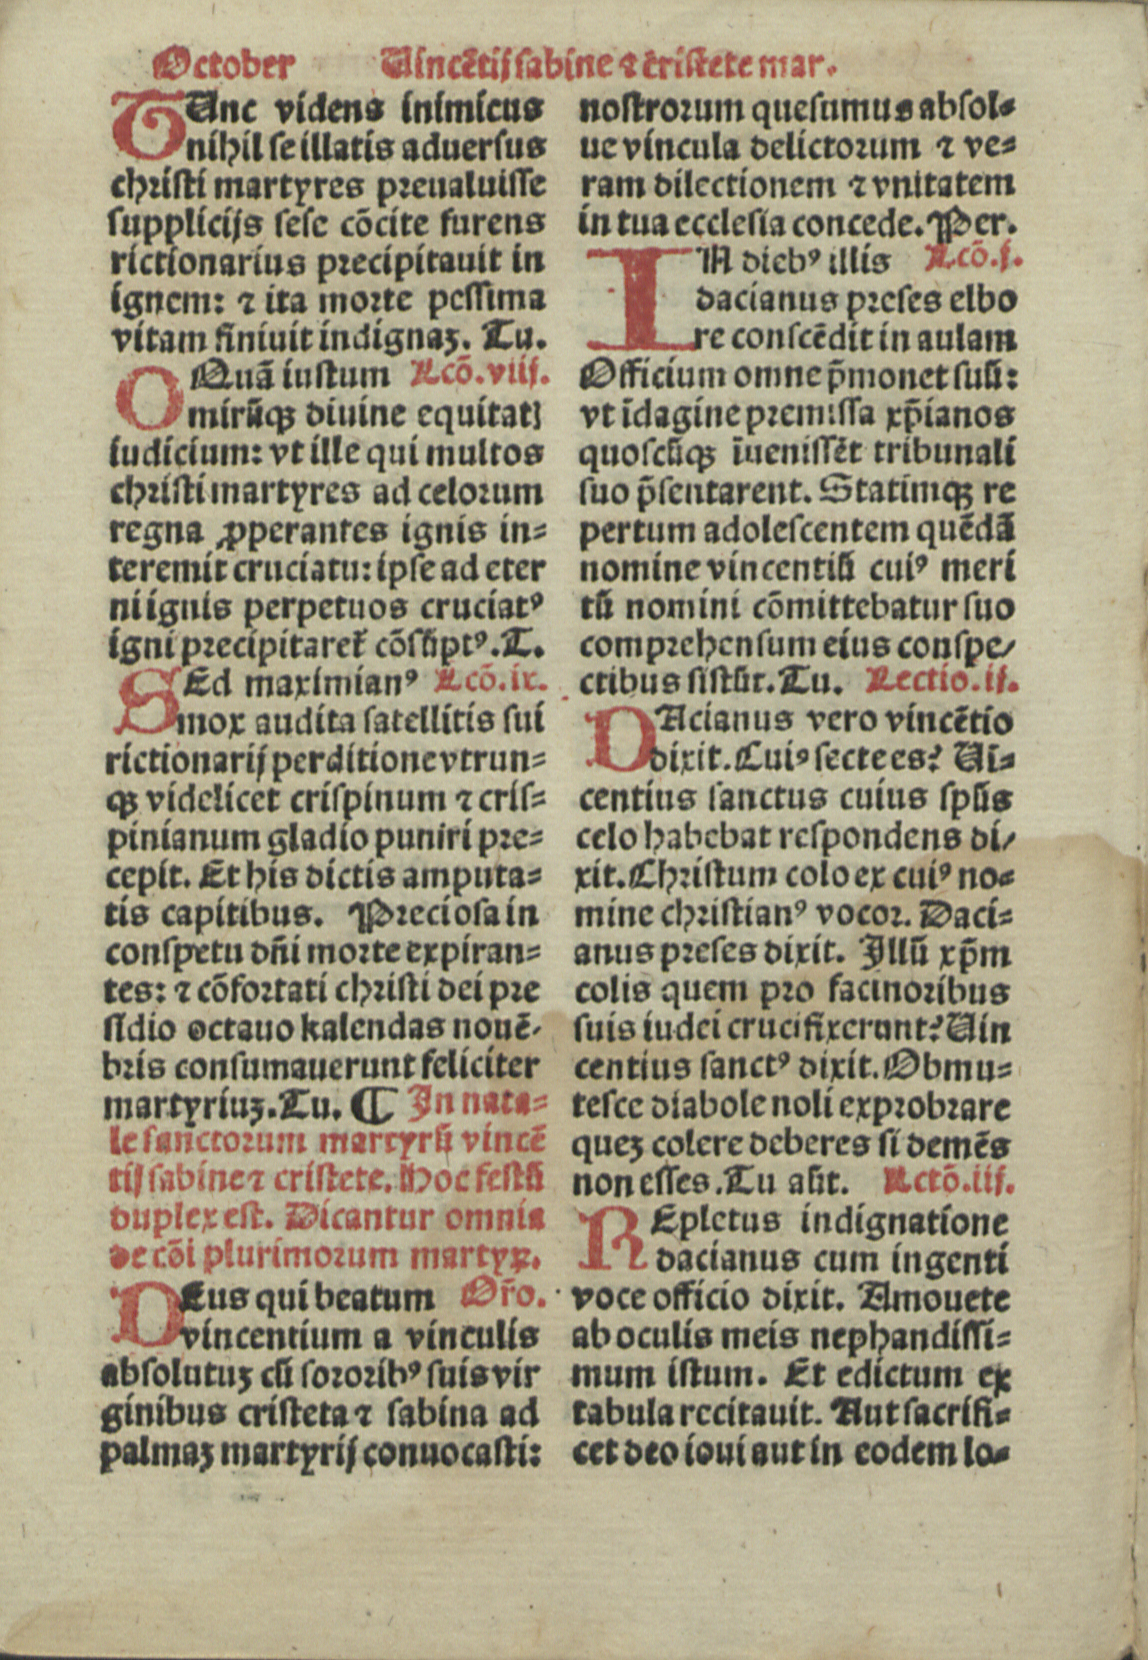 October Uincētij sabine ⁊ c̄ristete mar.
TUnc videns inimicus
nihil se illatis aduersus
christi martyres preualuisse
supplicijs sese cōcite furens
rictionarius precipitauit in
ignem: ⁊ ita morte pessima
vitam finiuit indignaʒ. Tu.
O Quā iustum Lcō.viij.
mirūqꝫ diuine equitatꝭ
iudicium: vt ille qui multos
christi martyres ad celorum
regna ꝓperantes ignis in=
teremit cruciatu: ipse ad eter
ni ignis perpetuos cruciatꝰ
igni precipitaret᷑ cōsūptꝰ. T.
SEd maximianꝰ Lcō.ix.
mox audita satellitis sui
rictionarij perditione vtrun=
qꝫ videlicet crispinum ⁊ cris=
pinianum gladio puniri pre=
cepit. Et his dictis amputa=
tis capitibus. Preciosa in
conspetu dn̄i morte expiran=
tes: ⁊ cōfortati christi dei pre
sidio octauo kalendas nouē=
bris consumauerunt feliciter
martyriuʒ. Tu. ¶ In nata=
le sanctorum martyrū vincē
tij sabine ⁊ cristete. Hoc festū
duplex est. Dicantur omnia
de cōi plurimorum martyꝝ.
DEus qui beatum Or̄o.
vincentium a vinculis
absolutuʒ cū sororibꝰ suis vir
ginibus cristeta ⁊ sabina ad
palmaʒ martyrij conuocasti:
nostrorum quesumus absol=
ue vincula delictorum ⁊ ve=
ram dilectionem ⁊ vnitatem
in tua ecclesia concede. Per.
IN diebꝰ illis Lcō.j.
dacianus preses elbo
re conscēdit in aulam
Officium omne p̄monet suū:
vt īdagine premissa xp̄ianos
quoscūqꝫ īuenissēt tribunali
suo p̄sentarent. Statimqꝫ re
pertum adolescentem quēdā
nomine vincentiū cuiꝰ meri
tū nomini cōmittebatur suo
comprehensum eius conspe/
ctibus sistūt. Tu. Lectio.ij.
DAcianus vero vincētio
dixit. Cuiꝰ secte es? Ui=
centius sanctus cuius spūs
celo habebat respondens di/
xit. Christum colo ex cuiꝰ no=
mine christianꝰ vocor. Daci=
anus preses dixit. Illū xp̄m
colis quem pro facinoribus
suis iudei crucifixerunt? Uin
centius sanctꝰ dixit. Obmu=
tesce diabole noli exprobrare
queʒ colere deberes si demēs
non esses. Tu aūt. Lctō.iij.
REpletus indignatione
dacianus cum ingenti
voce officio dixit. Amouete
ab oculis meis nephandissi=
mum istum. Et edictum ex
tabula recitauit. Aut sacrifi=
cet deo ioui aut in eodem lo=